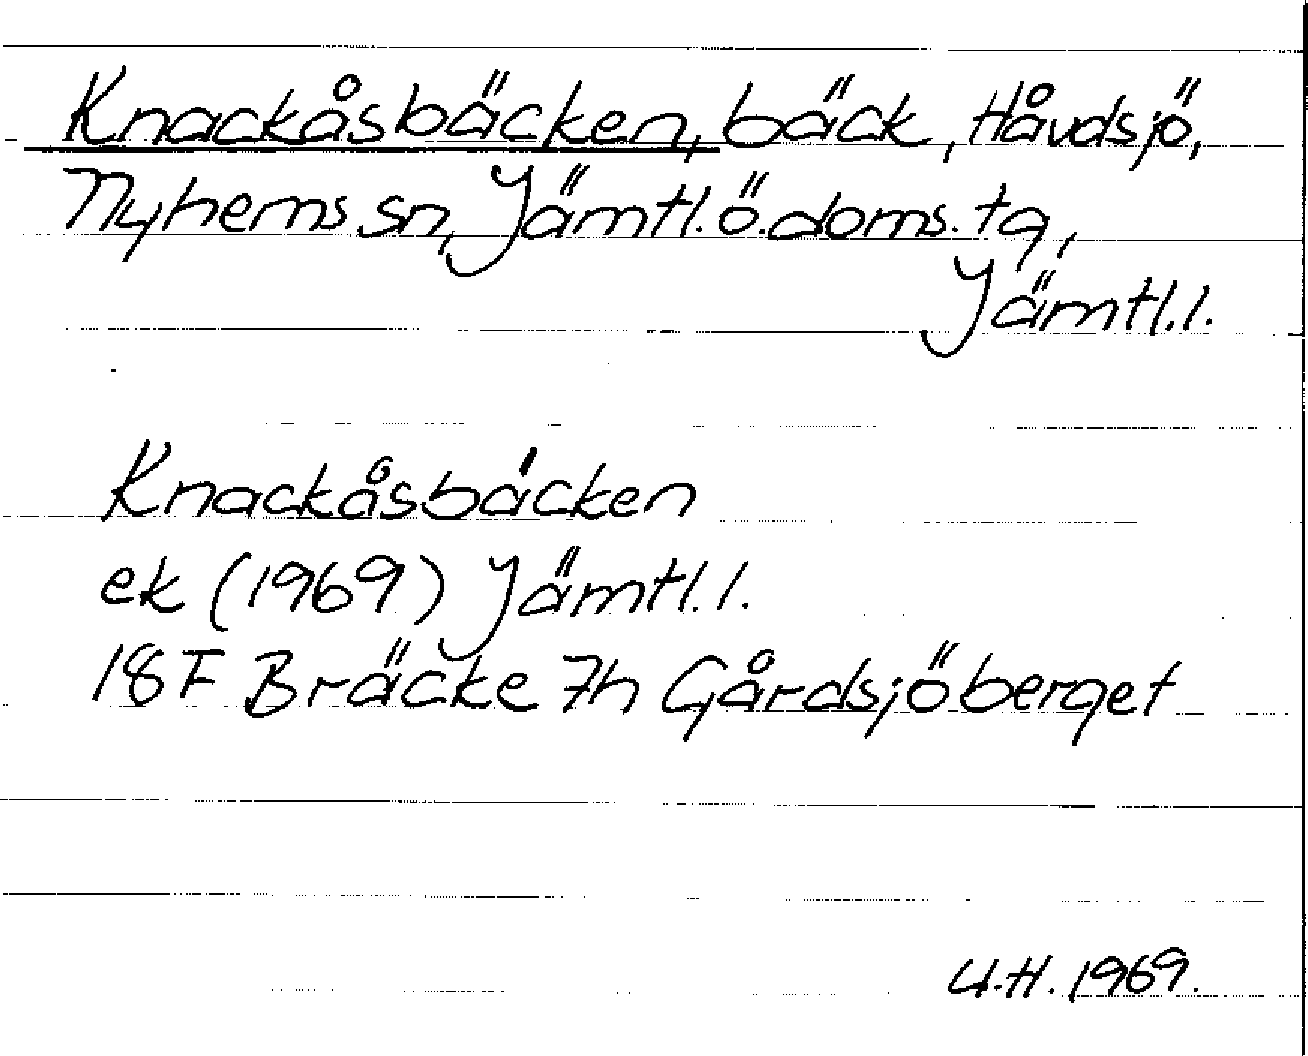 Knackåsbäcken, bäck, Håvdsjö,
Nyhems sn, Jämtl. ö. doms. tg,
Jämtl. l.
Knackåsbäcken
ek (1969) Jämtl. l.
18 F Bräcke 7h Gårdsjöberget
U.H. 1969.